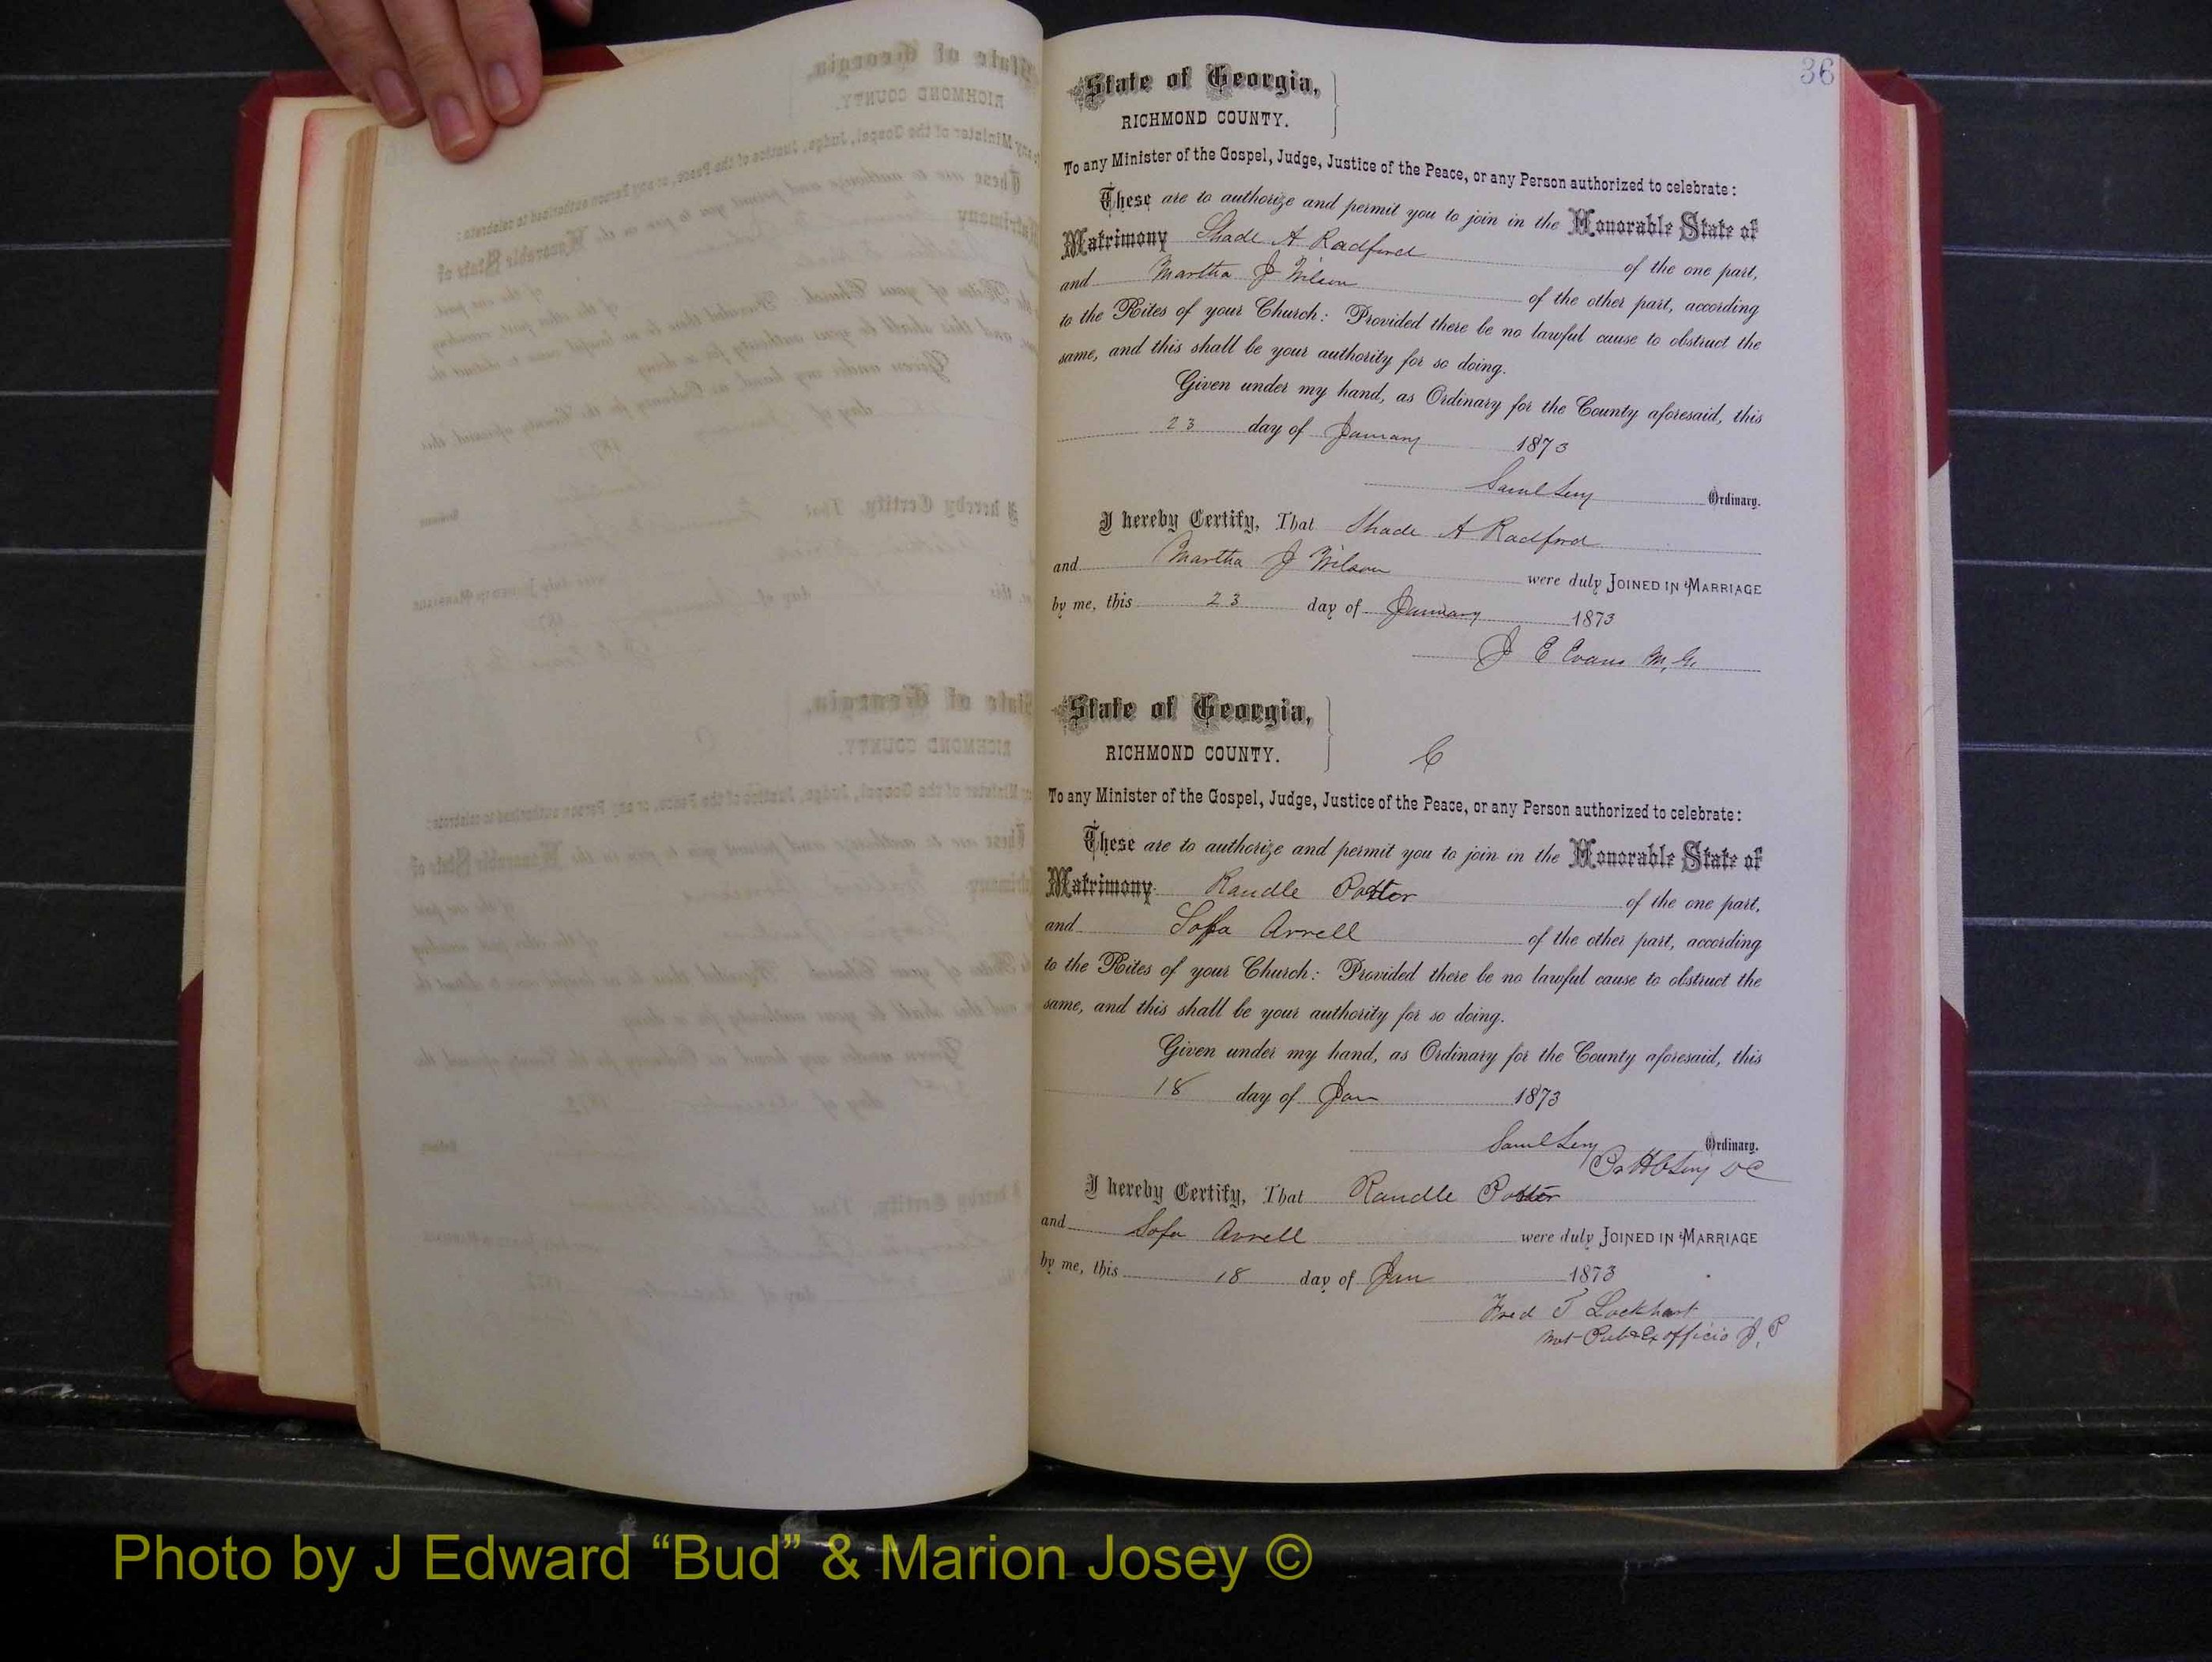 36
State of Georgia,
RICHMOND COUNTY.
To any Minister of the Gospel, Judge, Justice of the Peace, or any Person authorized to celebrate:
These are to authorize and permit you to join in the Honorable State of
Matrimony Shade A Radford of the one part,
and Martha J Wilson of the other part, according
to the Rites of your Church: Provided there be no lawful cause to obstruct the
same, and this shall be your authority for so doing.
Given under my hand, as Ordinary for the County aforesaid, this
23 day of January 1873
Saml Levy Ordinary.
I hereby Certify, That Shade A Radford
and Martha J Wilson were duly JOINED IN MARRIAGE
by me, this 23 day of January 1873
J E Evans M, G,
State of Georgia,
RICHMOND COUNTY.
C
To any Minister of the Gospel, Judge, Justice of the Peace, or any Person authorized to celebrate:
These are to authorize and permit you to join in the Honorable State of
Matrimony Randle Potter of the one part,
and Sofa Arrell of the other part, according
to the Rites of your Church: Provided there be no lawful cause to obstruct the
same, and this shall be your authority for so doing.
Given under my hand, as Ordinary for the County aforesaid, this
18 day of Jan 1873
Saml Levy Ordinary.
Levy DC
I hereby Certify, That Randle Potter
and Sofa Arrell were duly JOINED IN MARRIAGE
by me, this 18 day of Jan 1873
Fred T Lockhart
Not Pub & Ex officio J, P
Photo by J Edward “Bud” & Marion Josey ©